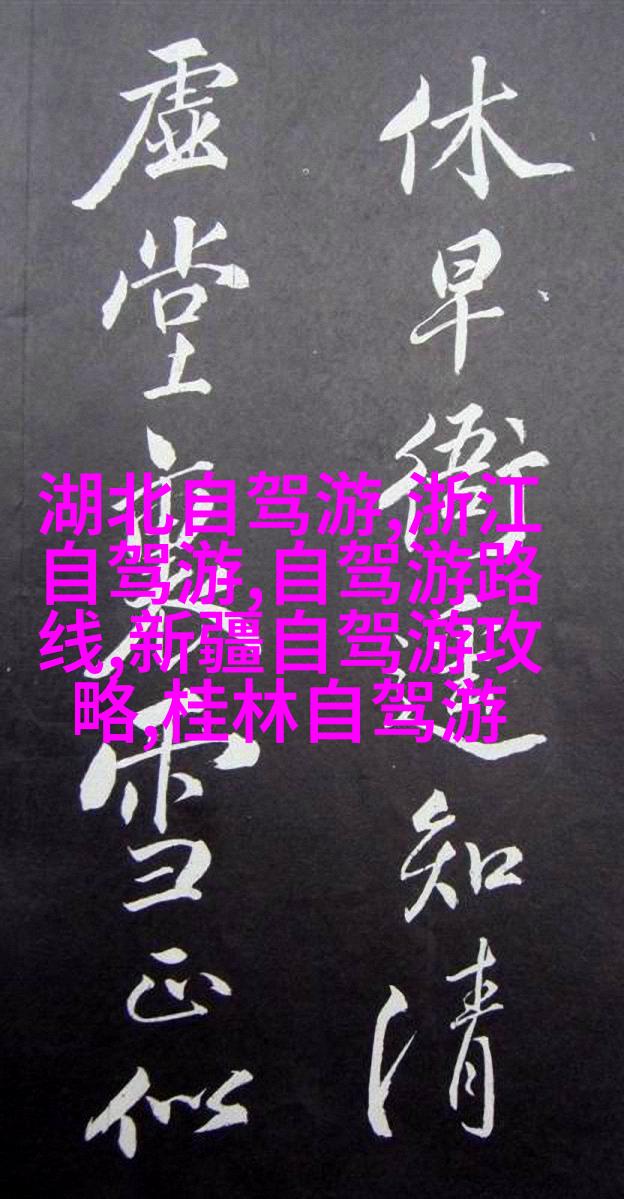 休早衙知清
虚堂雪正似
湖北自驾游,浙江
自驾游,自驾游路
线,新疆自驾游攻
略,桂林自驾游